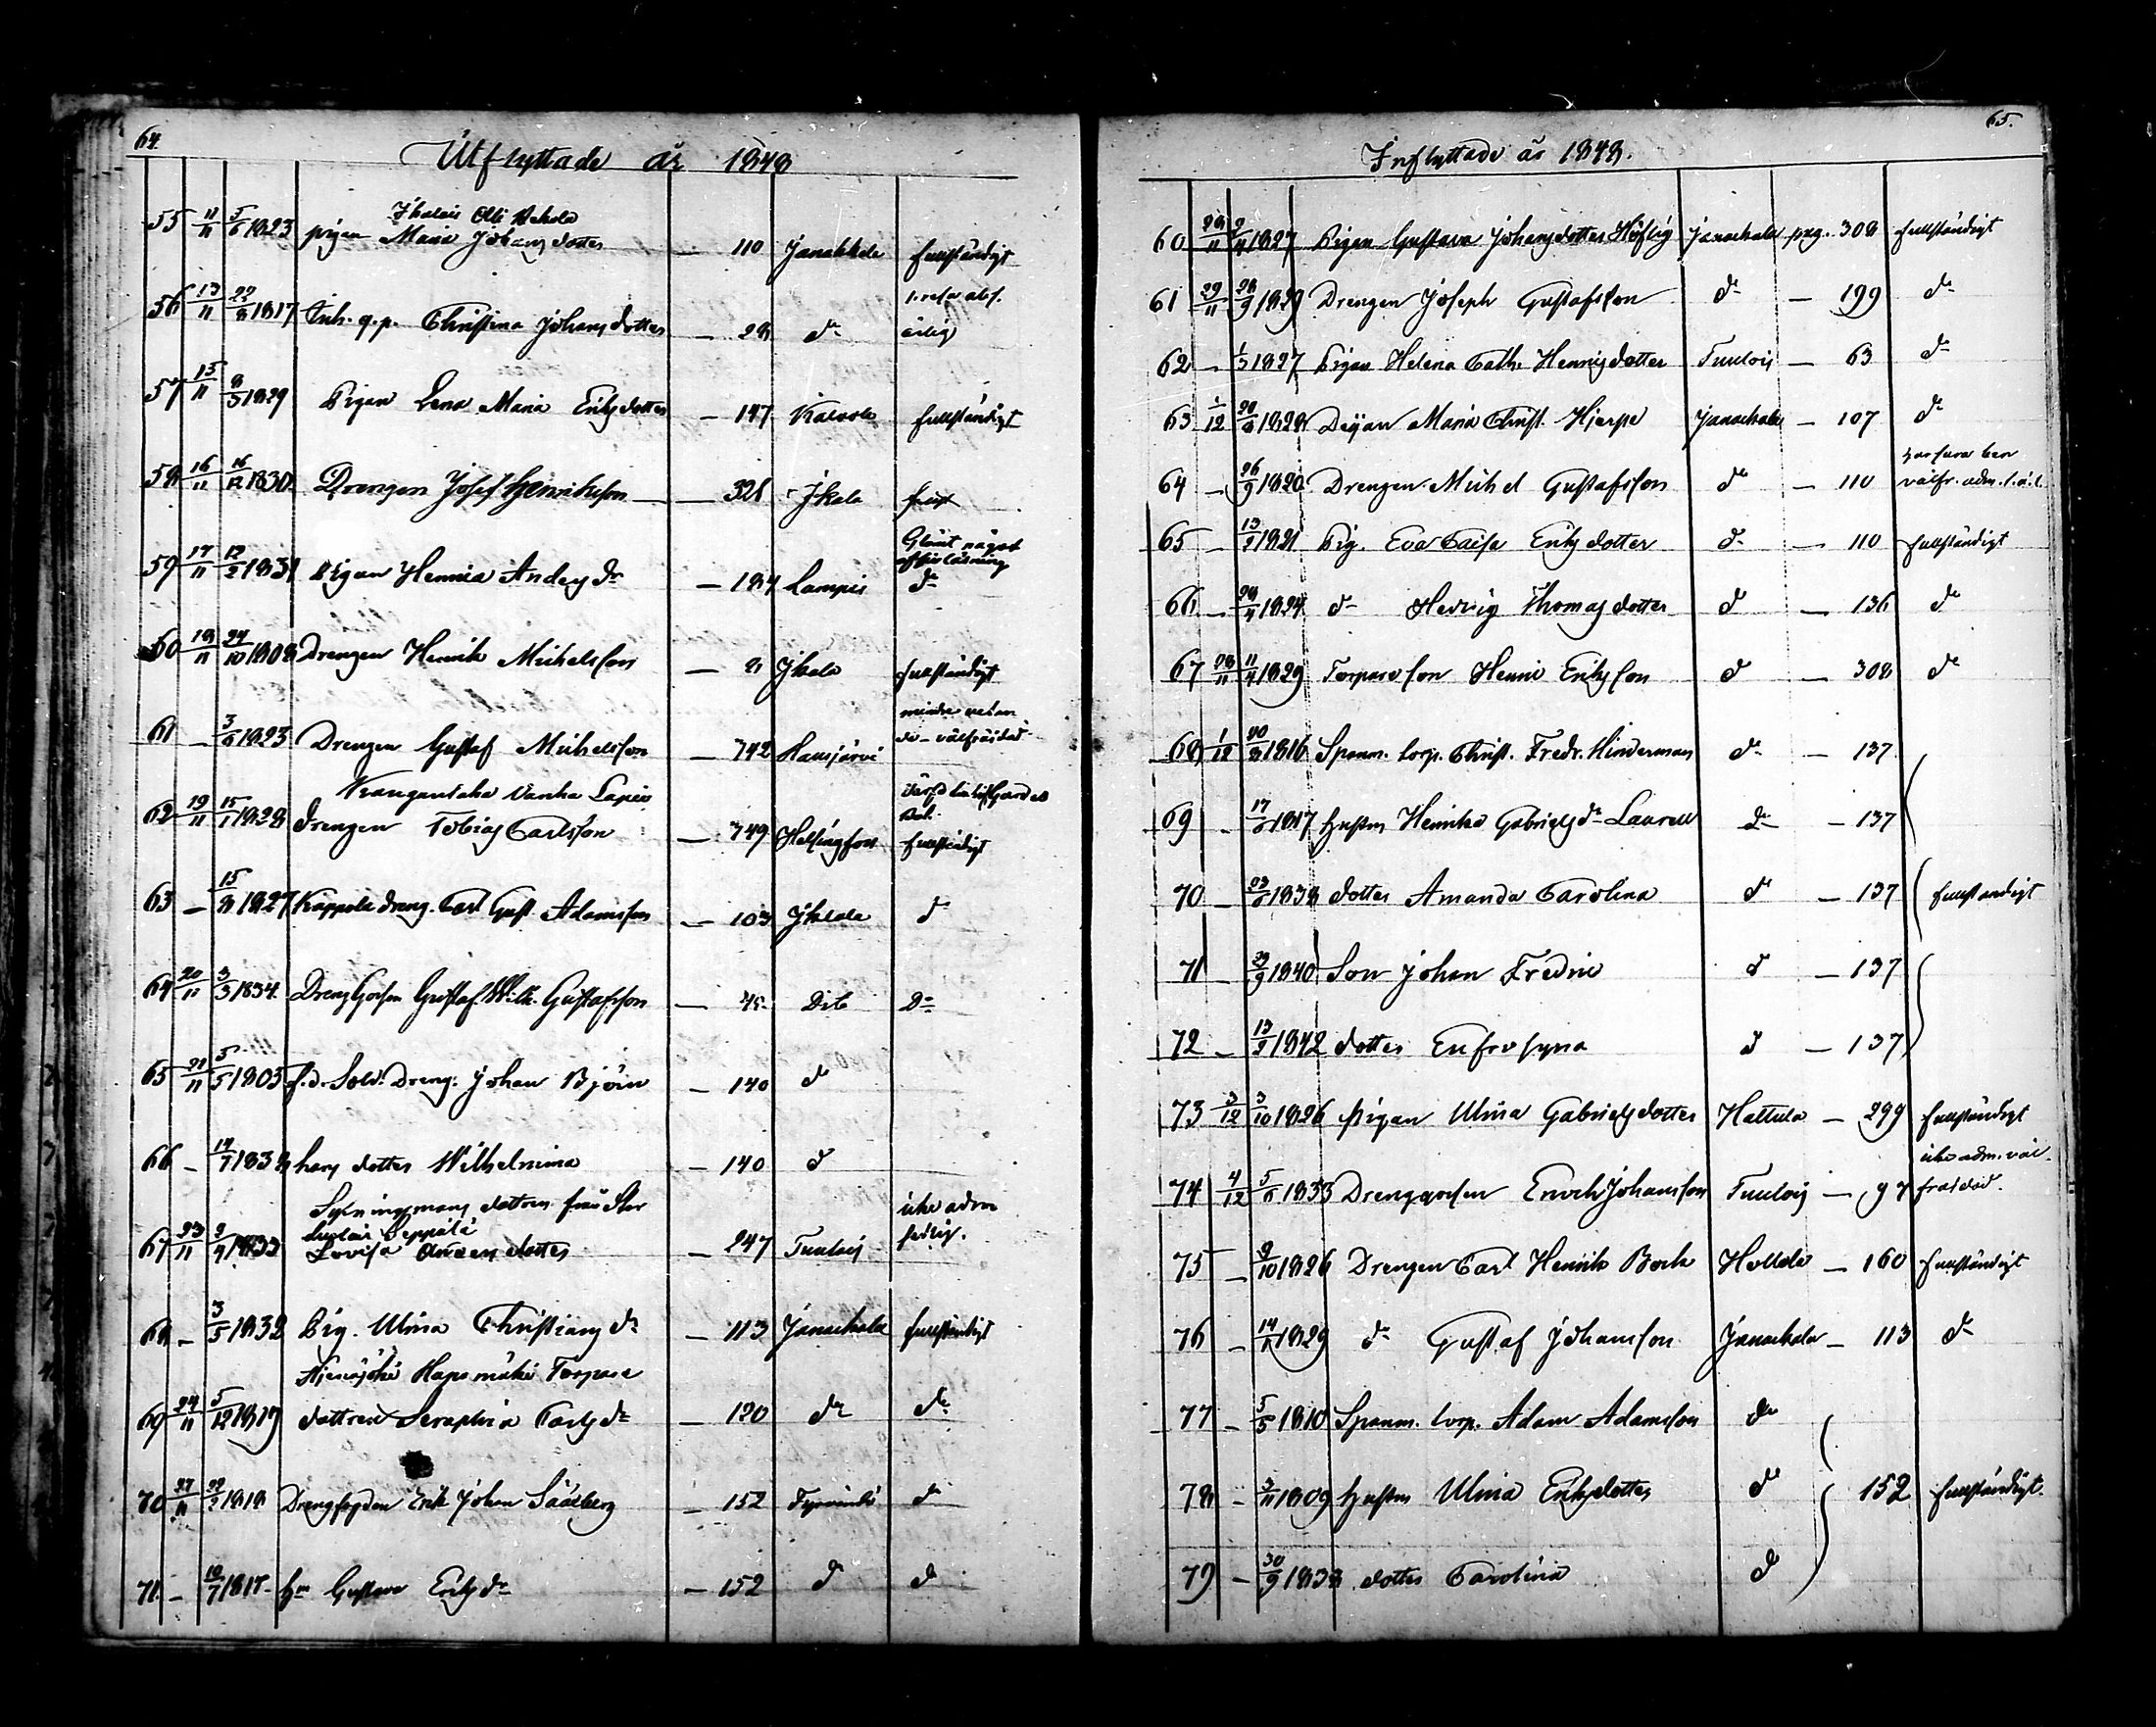 64.
Utflyttade år 1848
Ihalais Olli Uskola
55 11/11 5/6 1823 pigan Maria Johansdotter — 110 Janakkala fullständigt
56 13/11 22/8 1817 Inh. q.p. Christina Johansdotter — 28 do ärlig
57 13/11 8/5 1829 Pigan Lena Maria Eriksdotter — 147 Kalvola fullständigt
58 16/11 16/12 1830 Drengen Josef Henriksson — 321 Jkala
Glömt något
59 17/11 12/2 1831 Pigan Henrica Anders dr — 184 Lampis do
60 18/11 24/10 1808 Drengen Henrik Michelsson — 8 Jkala fullständigt
61 — 3/6 1823 Drengen Gustaf Michelsson — 742 Hausjärvi
Vanha
62 19/11 15/1 1828 drengen Tobias Carlsson — 749 Helsingfors fullständigt
63 — 15/8 1827 Kappola dreng. Carl Gust. Adamsson — 103 Jkala do
64 20/11 3/3 1834 Dreng Gossen Gustaf Wilh. Gustafsson — 45 Dito Do
65 22/11 5/5 1803 f.d. Sold. Dreng. Johan Björn — 140 do
66 — 14/7 1838 hans dotter Wilhelmina — 140 do
Syningsmans dottren från Stor
Seppälä icke adm
67 23/11 2/4 1833 Lovisa Anders dotter — 247 Tuulois
68 — 3/5 1832 Pig. Ulrica Christians dr — 113 Janackala fullständigt
Hapamäki Torpare
69 24/11 5/12 1819 dottren Seraphia Carls dr — 120 do do
70 27/11 22/2 1818 Drengfogden Erik Johan Säälberg — 152 Tyrvändö do
71. — 18/7 1817 Hu Gustava Eriks dr — 152 do do
65.
Inflyttade år 1848.
60 28/11 2/4 1827 Pigan Gustava Johansdotter Höflig Janackala pag. 308 fullständigt
61 29/11 28/9 1829 Drengen Joseph Gustafsson do — 199 do
62 — 1/3 1827 Pigan Helena Cath. Henrigsdotter Tuulois — 63 do
63 1/12 1828 Pigan Maria Christ. Hjerpe Janackala — 107 do
64 — 26/9 1820 Drengen Michel Gustafsson do — 110
65 — 13/2 1821 Pig. Eva Caisa Eriksdotter do — 110 fullständigt
66 — 28/4 1824 do Hedvig Thomas dotter do — 136 do
67 28/11 11/4 1829 Torpare son Henric Ericsson do — 308 do
68 1/12 1816 Spanm. torp. Christ. Fredr. Hinderman do — 137
69 — 17/6 1817 hustru Henrika Gabriels dr Laurell do — 137
70 — 23/6 1838 dotter Amanda Carolina do — 137 fullständigt
71 — 23/9 1840 Son Johan Fredric do — 137
72 — 13/2 1842 dotter Eufrosyna do — 137
73 3/12 3/10 1826 pigan Ulrica Gabrielsdotter Hattula — 299 fullständigt
icke adm. väl
74 4/12 5/6 1833 Drenggossen Erich Johansson Tuulois — 97 frejdad.
75 — 9/10 1826 Drengen Carl Henrik Bock Hollola — 160 fullständigt
76 — 14/1 1829 do Gustaf Johansson Janackala — 113 do
77 — 5/5 1810 Spanm. torp. Adam Adamsson do
78 — 3/11 1809 hustru Ulrica Eriksdotter do 152 fullständigt.
79 — 30/9 1838 dotter Carolina do